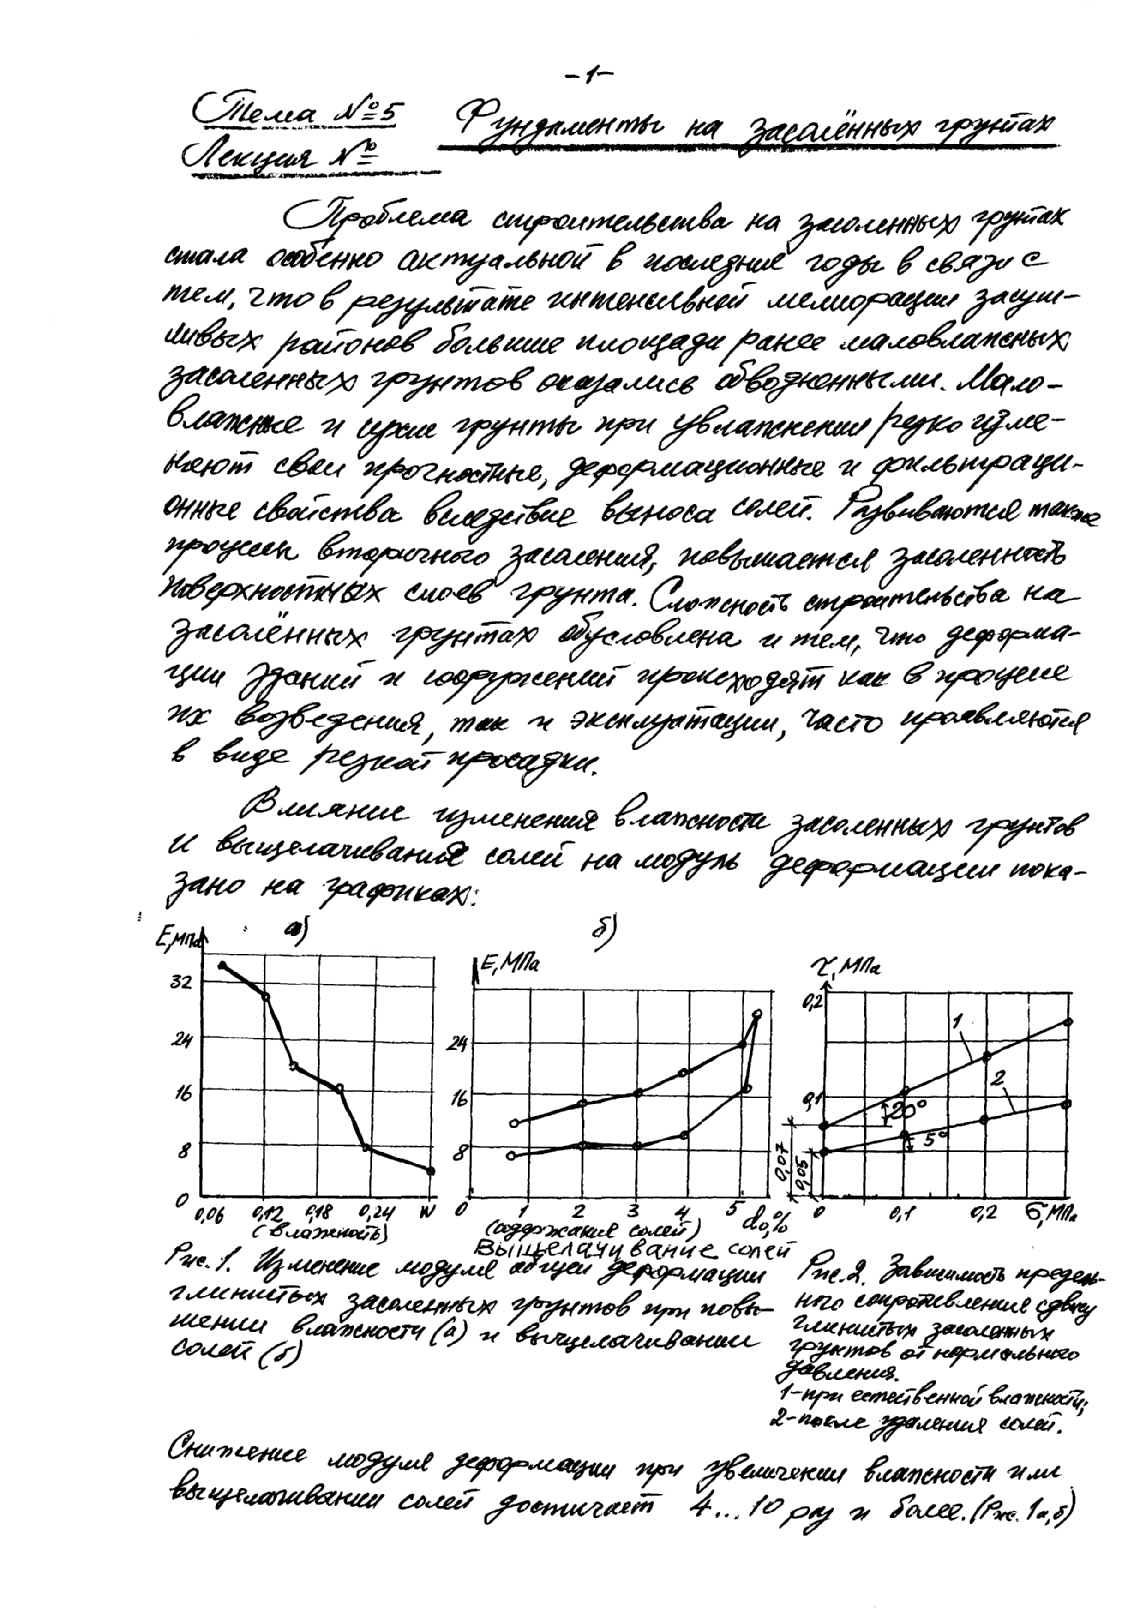 -1-
Тема №5 Фундаменты на засолённых грунтах
Лекция №
Проблема строительства на засоленных грунтах
стала особенно актуальной в последние годы в связи с
тем, что в результате интенсивной мелиорации засуш-
ливых районов большие площади ранее маловлажных
засоленных грунтов оказались обводненными. Мало-
влажные и сухие грунты при увлажнении резко изме-
няют свои прочностные, деформационные и фильтраци-
онные свойства вследствие выноса солей. Развиваются также
процессы вторичного засоления, повышается засоленность
поверхностных слоев грунта. Сложность строительства на
засолённых грунтах обусловлена и тем, что деформа-
ции зданий и сооружений происходят как в процессе
их возведения, так и эксплуатации, часто проявляются
в виде резкой просадки.
Влияние изменения влажности засоленных грунтов
и выщелачивания солей на модуль деформации пока-
зано на графиках:
а) б)
E,МПа
32
24
16
8
0
0,06 0,12 0,18 0,24 W
(влажность)
E,МПа
24
16
8
0 1 2 3 4 5 d₀,%
(содержания солей)
Выщелачивание солей
τ,МПа
0,2
0,1
1
2
20°
5°
0,07
0,05
0 0,1 0,2 σ,МПа
Рис. 1. Изменение модуля общей деформации
глинистых засоленных грунтов при повы-
шении влажности (а) и выщелачивании
солей (б)
Рис.2. Зависимость предель-
ного сопротивления сдвигу
глинистых засоленных
грунтов от нормального
давления.
1-при естественной влажности;
2-после удаления солей.
Снижение модуля деформации при увеличении влажности или
выщелачивании солей достигает 4...10 раз и более. (Рис. 1а,б)